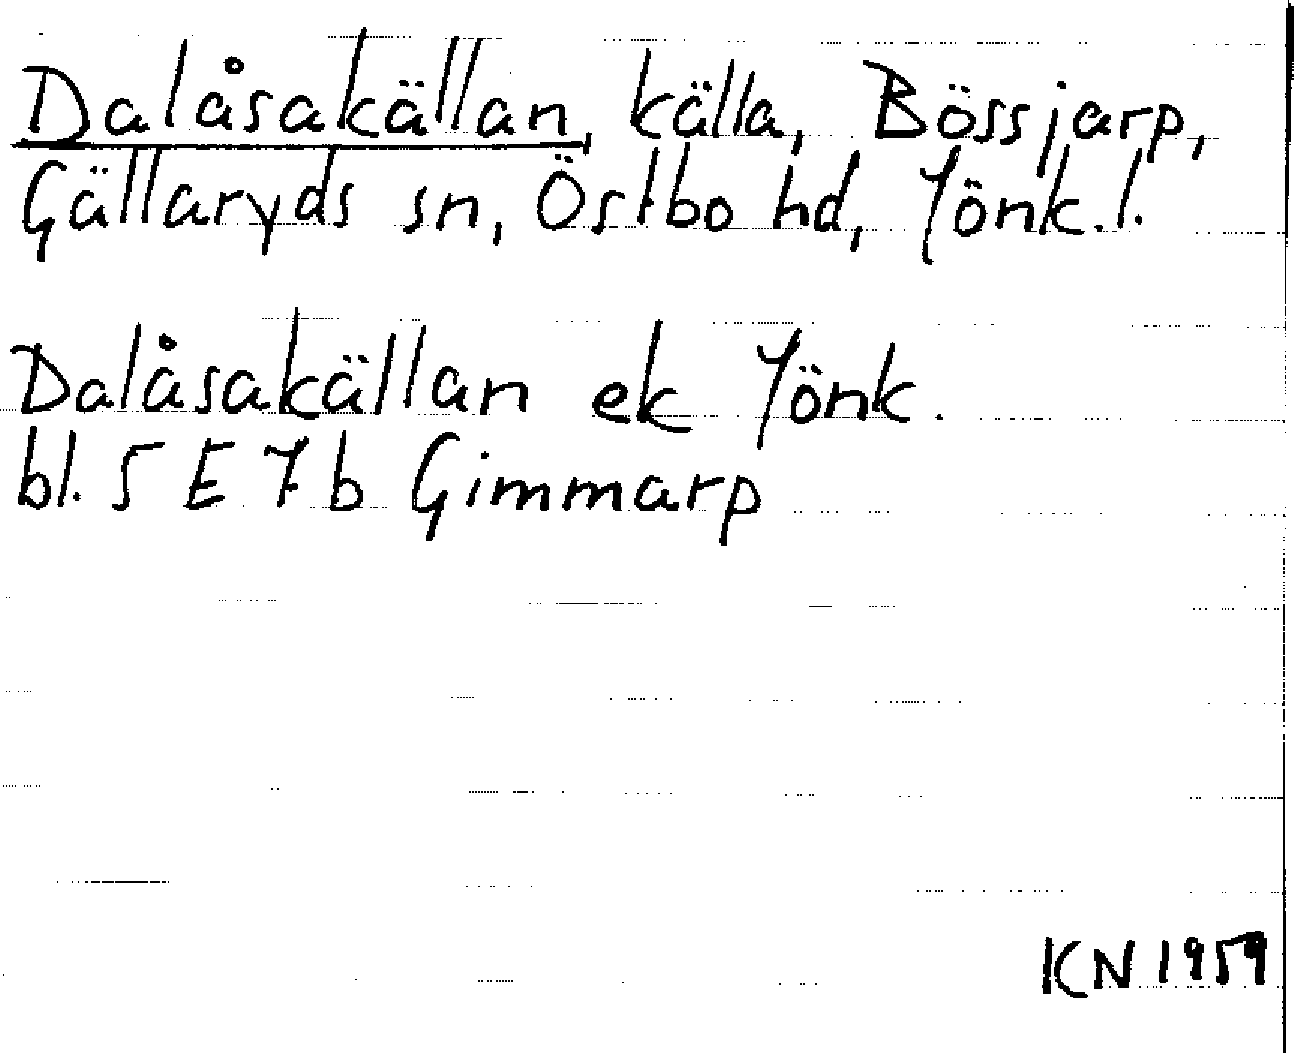 Dalåsakällan, källa, Bössjarp,
Gällaryds sn, Östbo hd, Jönk. l.
Dalåsakällan ek Jönk.
bl. 5 E 7 b Gimmarp
KN 1959